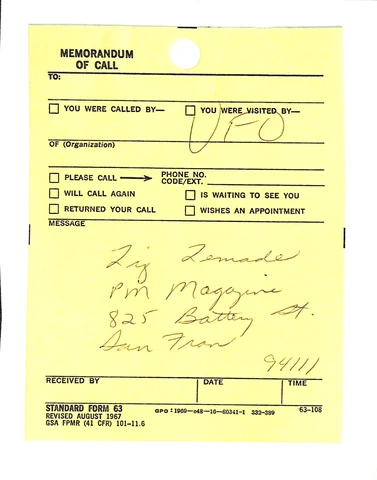 MEMORANDUM
OF CALL
TO:
YOU WERE CALLED BY— YOU WERE VISITED BY—
UFO
OF (Organization)
PLEASE CALL → PHONE NO.
CODE/EXT.
WILL CALL AGAIN IS WAITING TO SEE YOU
RETURNED YOUR CALL WISHES AN APPOINTMENT
MESSAGE
Liz Lemade
PM Magazine
825 Battery St.
San Fran
94111
RECEIVED BY DATE TIME
STANDARD FORM 63 GPO : 1969—c48—16—80341-1 332-389 63-108
REVISED AUGUST 1967
GSA FPMR (41 CFR) 101-11.6